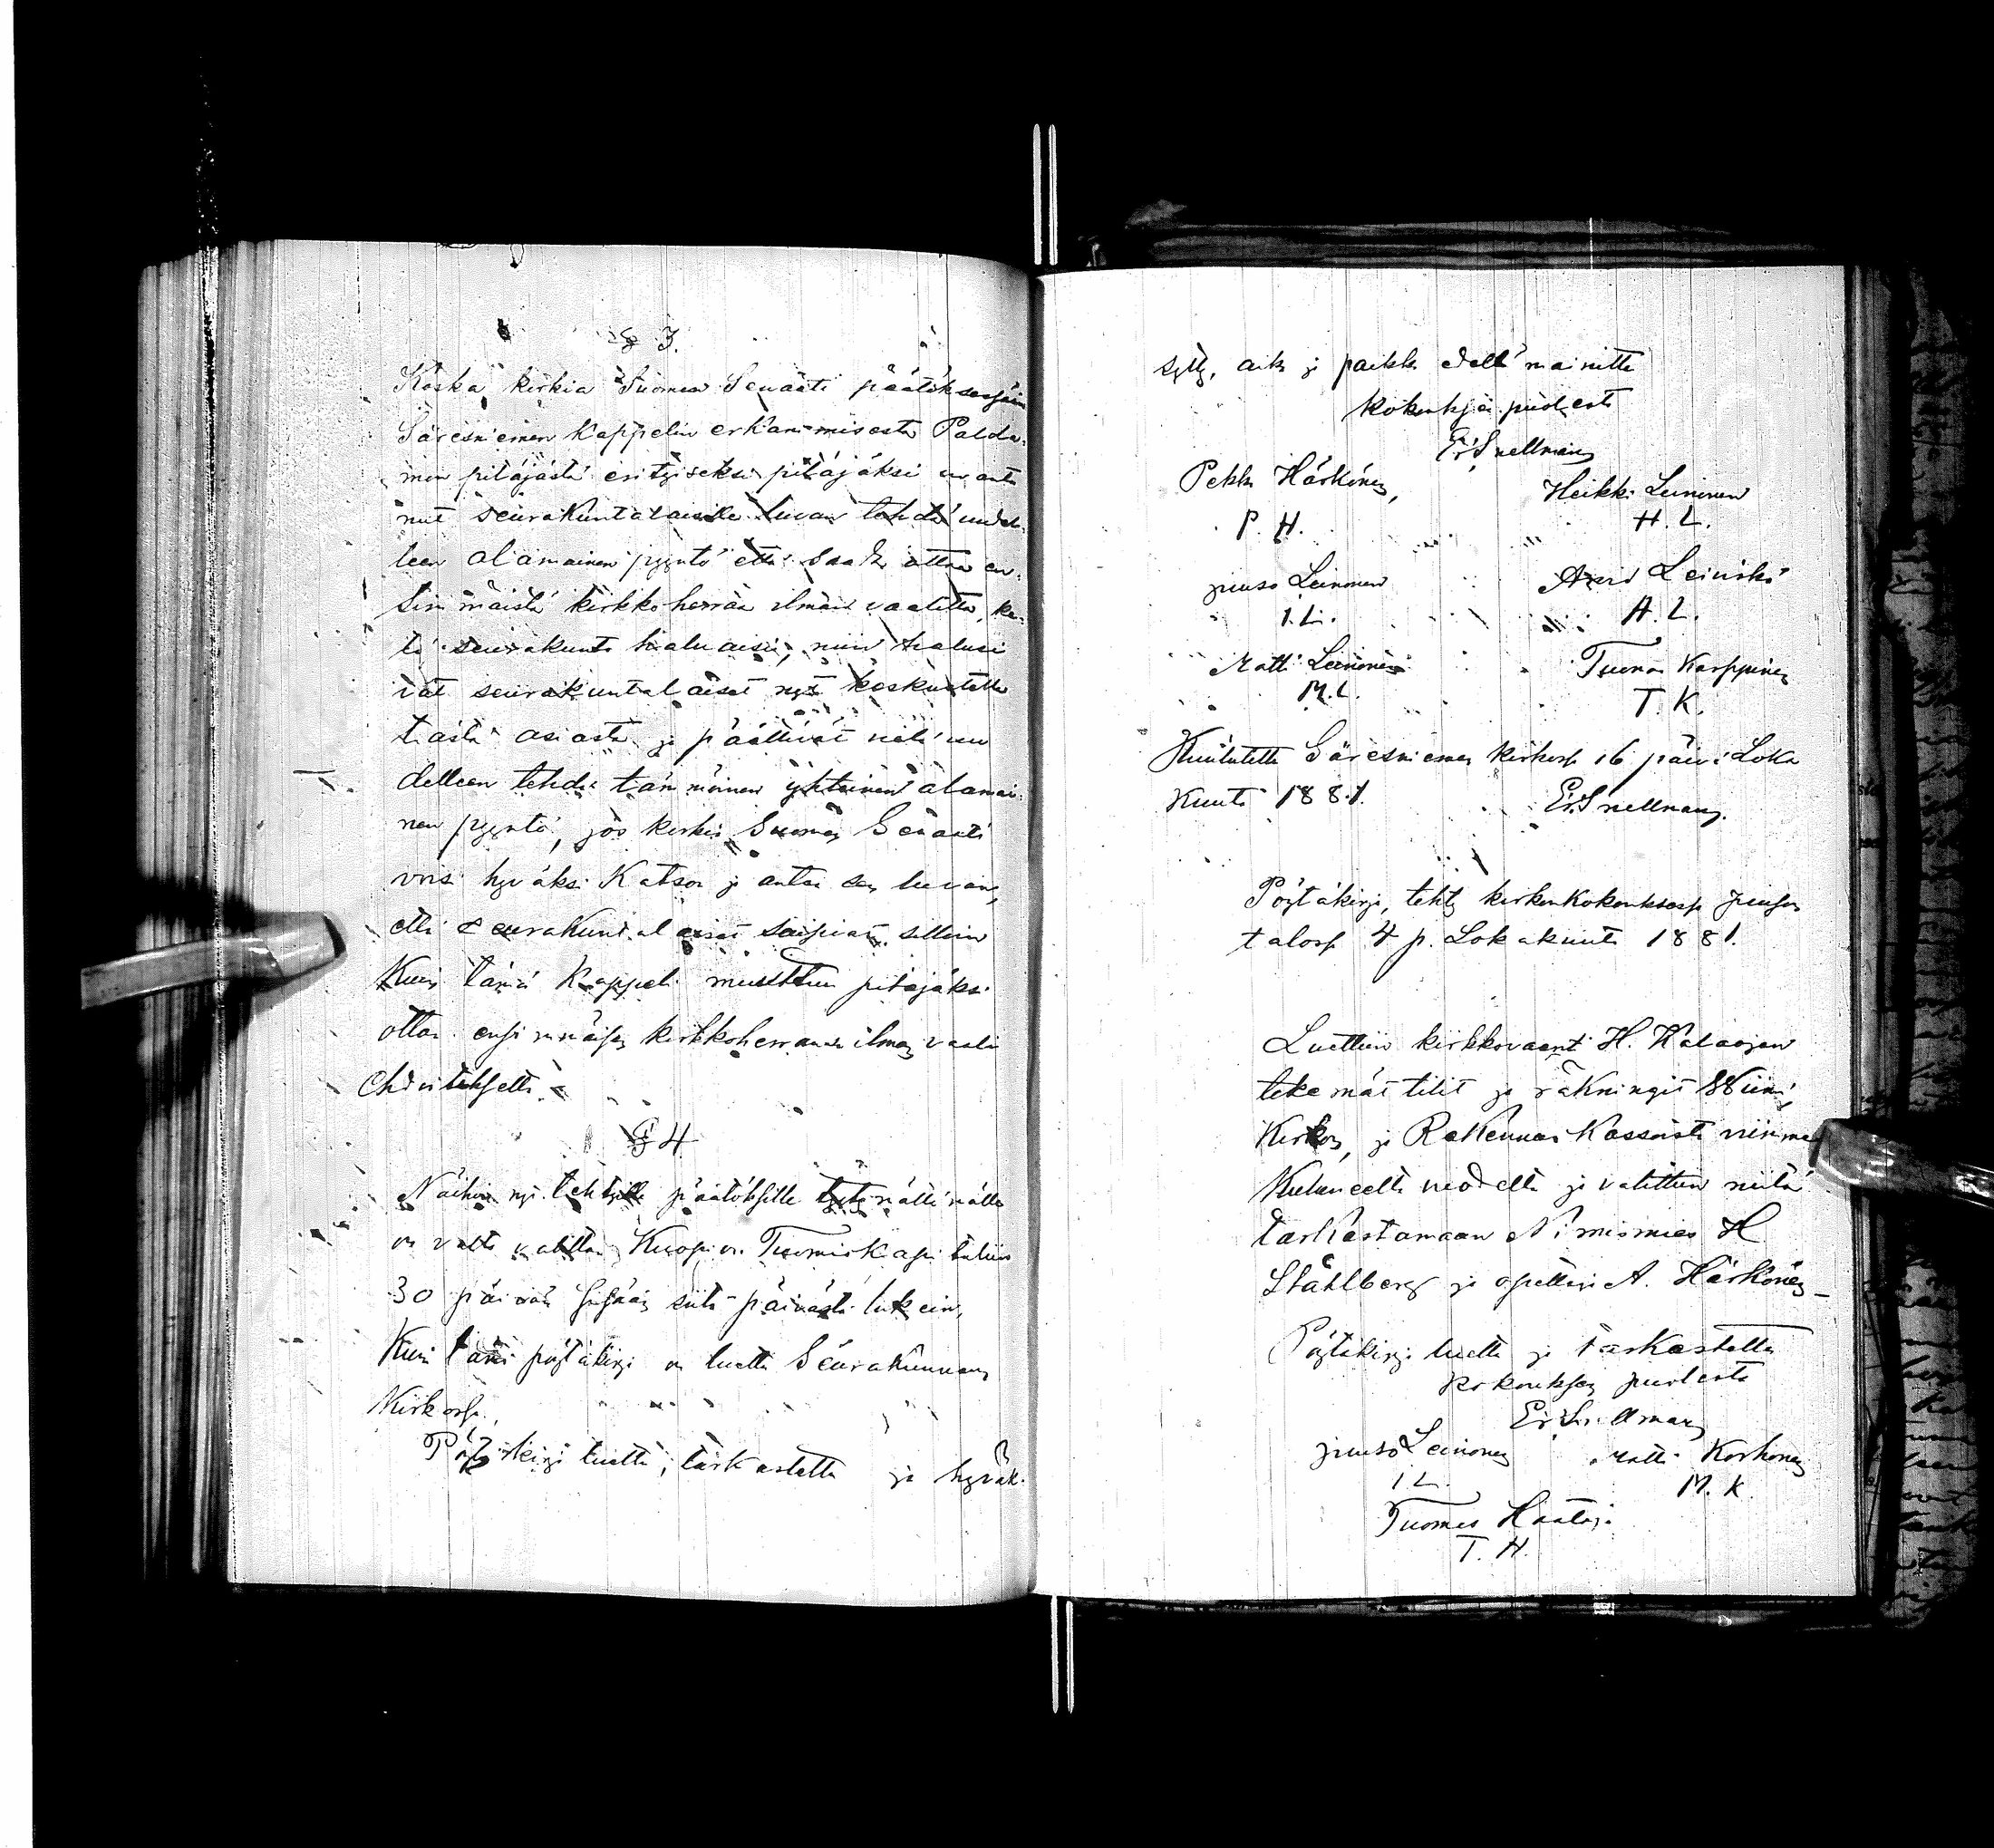 § 3.
Koska keskia Suomen Senaati päätöksessään
Säresniemen Kappelin erkanimisesta Palda-
mon pitäjästä erityiseksi pitäjäksi on anta
nut seurakuntalaisille luvan tehdä uudel-
leen alamainen pyyntö että saada ottaa en-
simäistä kirkkoherraa ilman vaalitta, ke-
tä seurakunta haluaisi, niin halusi
vat seurakuntalaiset nyt keskustella
tästä asiasta ja päättivät vielä uu
delleen tehdä tämmöinen yhteinen alamai-
nen pyyntö, jos keskia Suomen Senaati
voisi hyväksi Katsoa ja antaa sen luvan,
että seurakuntalaiset saisivat silloin
Kuin tämä Kappeli muuttuu pitäjäksi
ottaa ensimmäisen kirkkoherransa ilman vaali
ehdoituksetta.
§ 4
Näihin nyt tehtyille päätöksille tytymättömällä
on valta valittaa Kuopion Tuomiokapituliin
30 päivän sisään siitä päivästä lukein,
Kuin tämä pöytäkirja on luettu Seurakunnan
Kirkossa.
Pöytäkirja luettu, tarkastettu ja hyväk-
sytty, aika ja paikka edellä mainittu
kokouksen puolesta
Er. Snellman
Pekka Härkönen, Heikki Leinonen
P. H. H. L.
Juuso Leinonen Arvid Leiviskä
I. L. A. L.
Matti Leinonen Tuomas Karppinen
M. L. T. K.
Kuulutettu Säresniemen kirkossa 16 päivä Loka
Kuuta 1881. Er. Snellman.
Pöytäkirja, tehty kirkonkokouksessa Juuson
talossa 4 p. Lokakuuta 1881.
Luettiin kirkkovaarti H. Kalaojan
tekemät tilit ja räkningit Wiini,
Kirkon, ja Rakennus Kassoista viimme
Kuluneelta vuodelta ja valittiin niitä
tarkastamaan Nimismies H
Ståhlberg ja opettaja A. Härkönen_
Pöytäkirja luettu ja tarkastettu
kokouksen puolesta
Er. Snellman
Juuso Leinonen Matti Korhonen
I L. M. K
Tuomas Haataja
T. H.